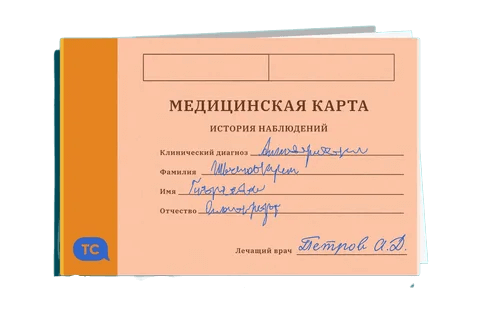 МЕДИЦИНСКАЯ КАРТА
ИСТОРИЯ НАБЛЮДЕНИЙ
Клинический диагноз
Фамилия
Имя
Отчество
Лечащий врач Петров А.Д.
ТС